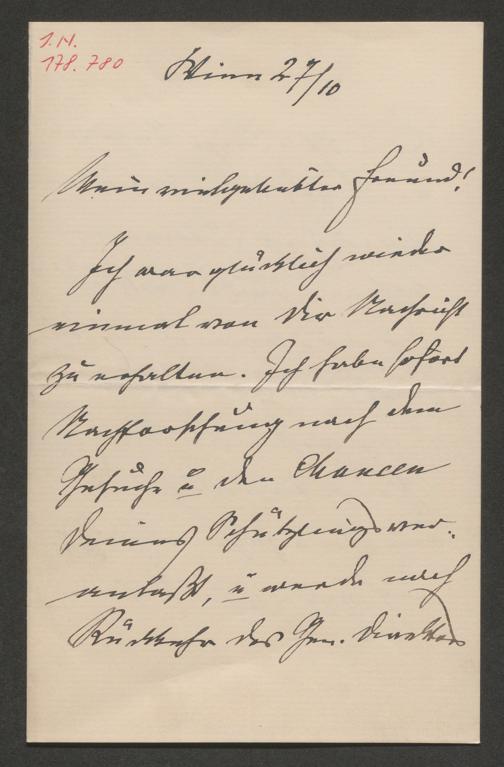 I.N.
178.780
Wien 27/10
Mein vielgeliebter Freund!
Ich war glücklich wieder
einmal von Dir Nachricht
zu erhalten. Ich habe sofort
Nachforschung nach dem
Gesuche u den Chancen
Deines Schützlings ver-
anlaßt, u werde nach
Rückkehr des Gen. Direktors